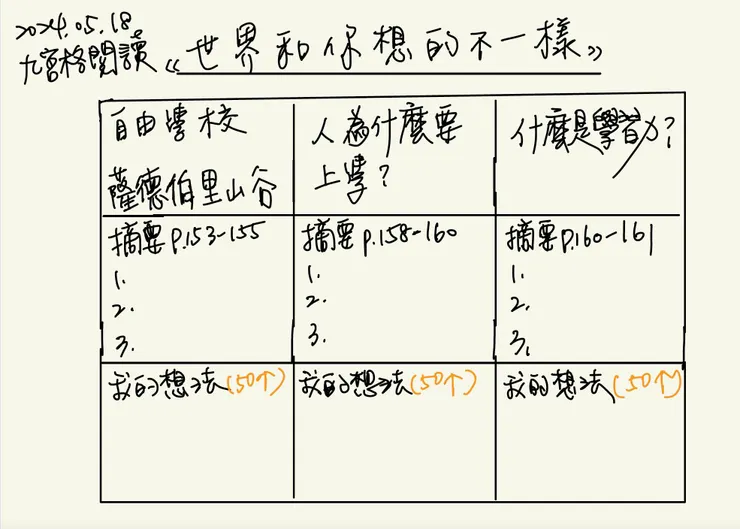 2024.05.18.
九宮格閱讀《世界和你想的不一樣》
自由學校
薩德伯里山谷
人為什麼要
上學?
什麼是學習力?
摘要p.153-155
1.
2.
3.
摘要p.158-160
1.
2.
3.
摘要p.160-161
1.
2.
3.
我的想法(50↑)
我的想法(50↑)
我的想法(50↑)